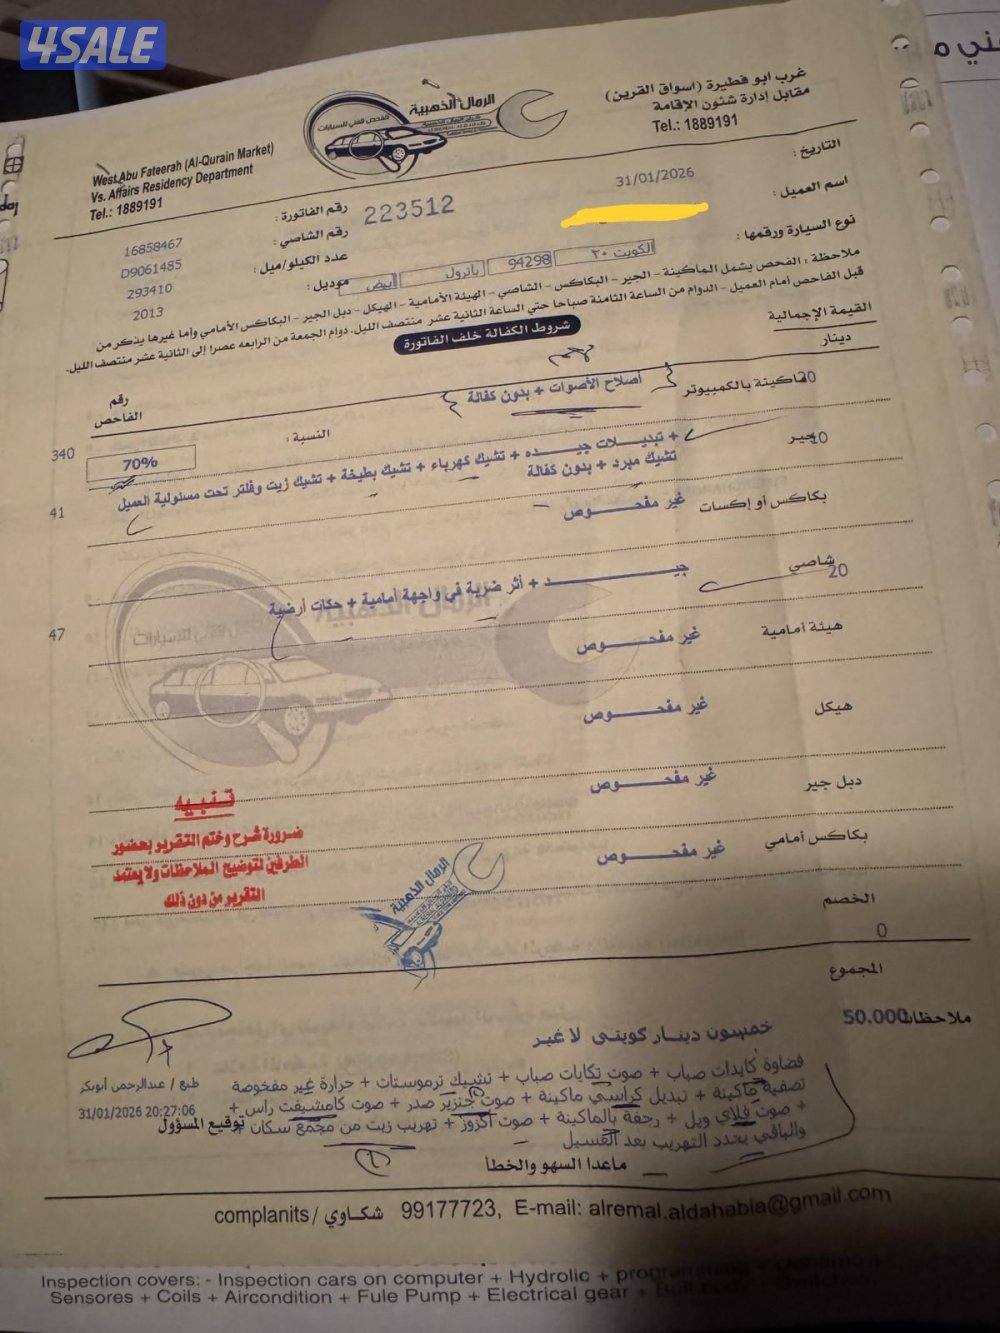 4SALE
الرمال الذهبية
للفحص الفني للسيارات
غرب ابو فطيرة (اسواق القرين)
مقابل إدارة شئون الإقامة
Tel.: 1889191
West Abu Fateerah (Al-Qurain Market)
Vs. Affairs Residency Department
Tel.: 1889191
التاريخ :
31/01/2026
رقم الفاتورة :
223512
اسم العميل :
16858467
رقم الشاصي :
نوع السيارة ورقمها :
الكويت ٢٠
94298
باترول
أبيض
D9061485
عدد الكيلو/ميل :
293410
موديل :
2013
ملاحظة : الفحص يشمل الماكينة - الجير - البكاكس - الشاصي - الهيئة الأمامية - الهيكل - دبل الجير - البكاكس الأمامي وأما غيرها يذكر من
قبل الفاحص أمام العميل - الدوام من الساعة الثامنة صباحا حتي الساعة الثانية عشر منتصف الليل. دوام الجمعة من الرابعه عصرا إلى الثانية عشر منتصف الليل.
شروط الكفالة خلف الفاتورة
القيمة الإجمالية
دينار
رقم
الفاحص
ماكينة بالكمبيوتر
20
أصلاح الأصوات + بدون كفالة
النسبة :
70%
340
جير
10
+ تبديـــلات جيـــده + تشيك كهرباء + تشيك بطيخة + تشيك زيت وفلتر تحت مسئولية العميل
تشيك مبرد + بدون كفالة
41
بكاكس أو إكسات
غير مفحـــوص
شاصي
20
جيـــــد + أثر ضربة في واجهة أمامية + حكات أرضية
47
هيئة أمامية
غير مفحـــوص
هيكل
غير مفحـــوص
دبل جير
غير مفحـــوص
بكاكس أمامي
غير مفحـــوص
تنبيه
ضرورة شرح وختم التقرير بحضور
الطرفين لتوضيح الملاحظات ولا يعتمد
التقرير من دون ذلك
الرمال الذهبية
الخصم
0
المجموع
50.000
ملاحظات
خمسون دينار كويتي لا غير
فضاوة كايدات صباب + صوت تكايات صباب + تشيك ترموستات + حرارة غير مفحوصة
تصفية ماكينة + تبديل كراسي ماكينة + صوت جنزير صدر + صوت كامشيفت راس +
+ صوت فلاي ويل + رجفة بالماكينة + صوت اكزوز + تهريب زيت من مجمع سكان +
والباقي يحدد التهريب بعد الغسيل
طبع / عبدالرحمن أبوبكر
31/01/2026 20:27:06
توقيع المسؤول
ماعدا السهو والخطأ
complanits / شكاوي 99177723, E-mail: alremal.aldahabia@gmail.com
Inspection covers: - Inspection cars on computer + Hydrolic +
Sensores + Coils + Aircondition + Fule Pump + Electrical gear +